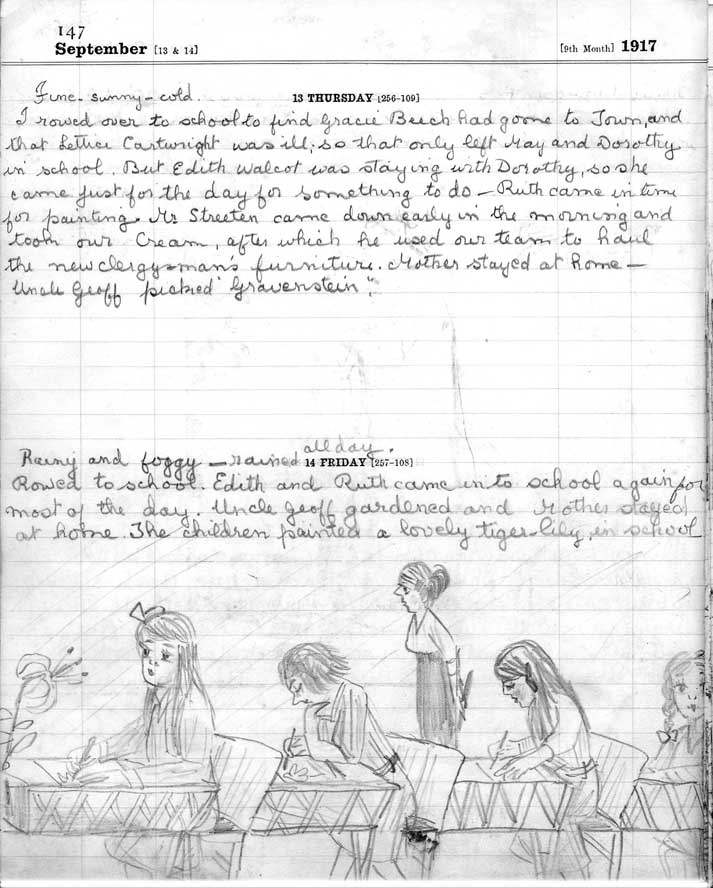 147
September [13 & 14] [9th Month] 1917
Fine - sunny - cold. 13 THURSDAY [256-109]
I rowed over to school to find Gracie Beech had gone to Town, and
that Lettice Cartwright was ill; so that only left May and Dorothy
in school. But Edith Walcot was staying with Dorothy, so she
came just for the day for something to do - Ruth came in time
for painting. Mr Streeten came down early in the morning and
took our Cream, after which he used our team to haul
the new clergyman's furniture. Mother stayed at home -
Uncle Geoff picked "Gravenstein".
all day.
Rainy and foggy - rained 14 FRIDAY [257-108]
Rowed to school. Edith and Ruth came in to school again for
most of the day. Uncle Geoff gardened and Mother stayed
at home. The children painted a lovely tiger-lily, in school